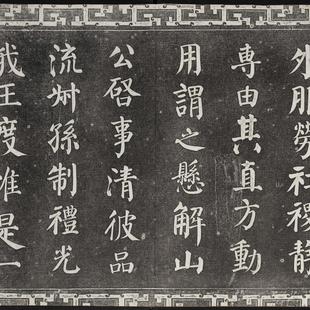 外服勞社稷静
專由其直方動
用謂之懸解山
公啓事清彼品
流叔孫制禮光
我王度惟是一